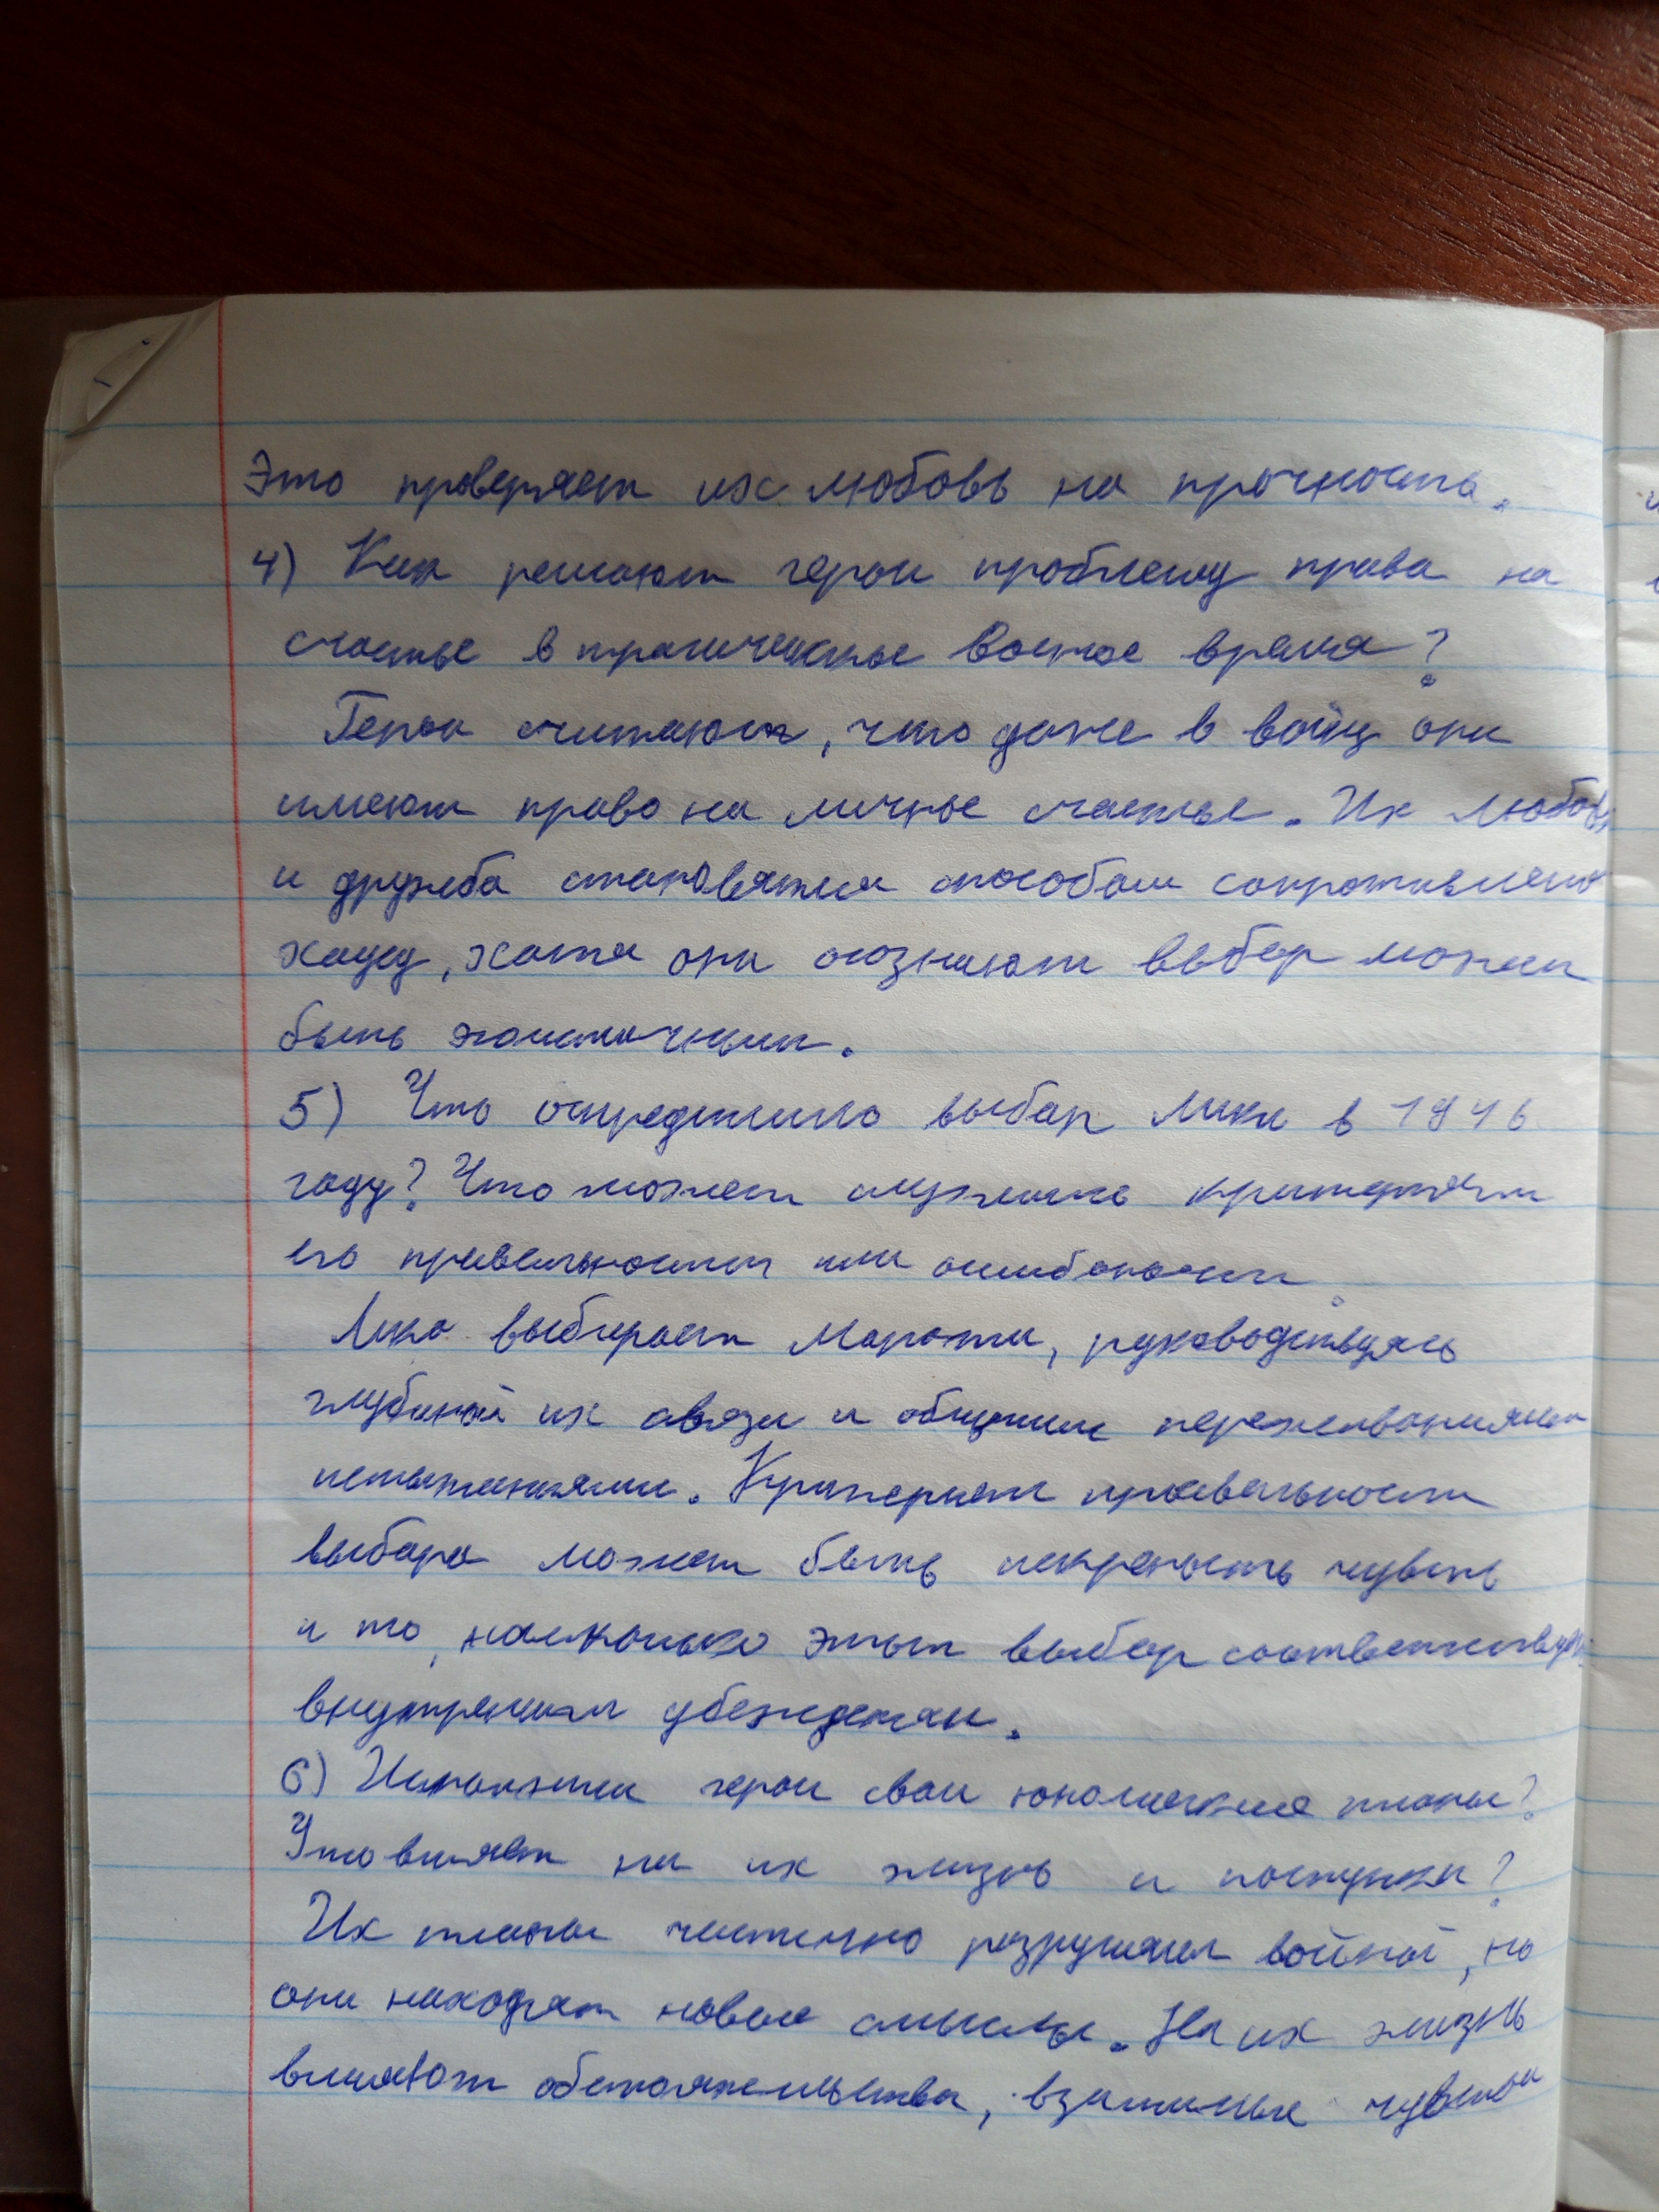 Это проверяет их любовь на прочность.
4) Как решают герои проблему права на
счастье в трагическое военое время?
Герои считают, что даже в войну они
имеют право на личное счастье. Их любовь
и дружба становятся способом сопротивления
хаусу, хотя они осознают выбор может
быть эгоистичным.
5) Что определило выбор Лики в 1946
году? Что может служить критерием
его правельности или ошибочности
Лика выбирает Марата, руководствуясь
глубиной их связи и общими переживаниями
испытаниями. Критерием правельности
выбора может быть искреность чувств
и то, насколько этот выбор соответствует
внутреним убеждениям.
6) Исполнили герои свои юношеские планы?
Что влияет на их жизнь и поступки?
Их планы частично разрушены войной, но
они находят новые смыслы. На их жизнь
влияют обстоятельства, взаимные чувства